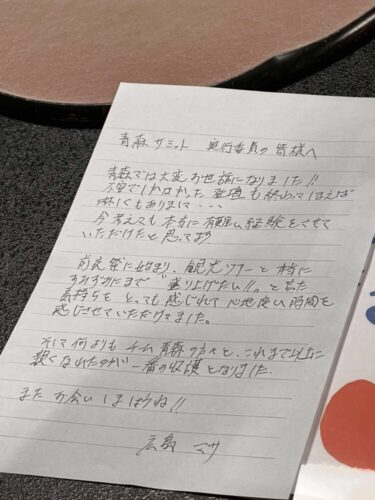 青森サミット 実行委員の皆様へ
青森では大変お世話になりました!!
不安でしかなかった登壇も終わってしまえば
淋しくもありまして・・・
今考えても本当に有難い経験をさせて
いただけたと思っており
前夜祭に始まり、観光ツアーと特に
すみずみまで“盛り上げたい!!„と言った
気持ちを とっても感じれて 心地良い時間を
感じさせていただけてました。
そして何よりも チーム青森の方々と、これまで以上に
親くなれたのが 一番の収穫となりました。
また お会いしましょうね!!
広島 マサ